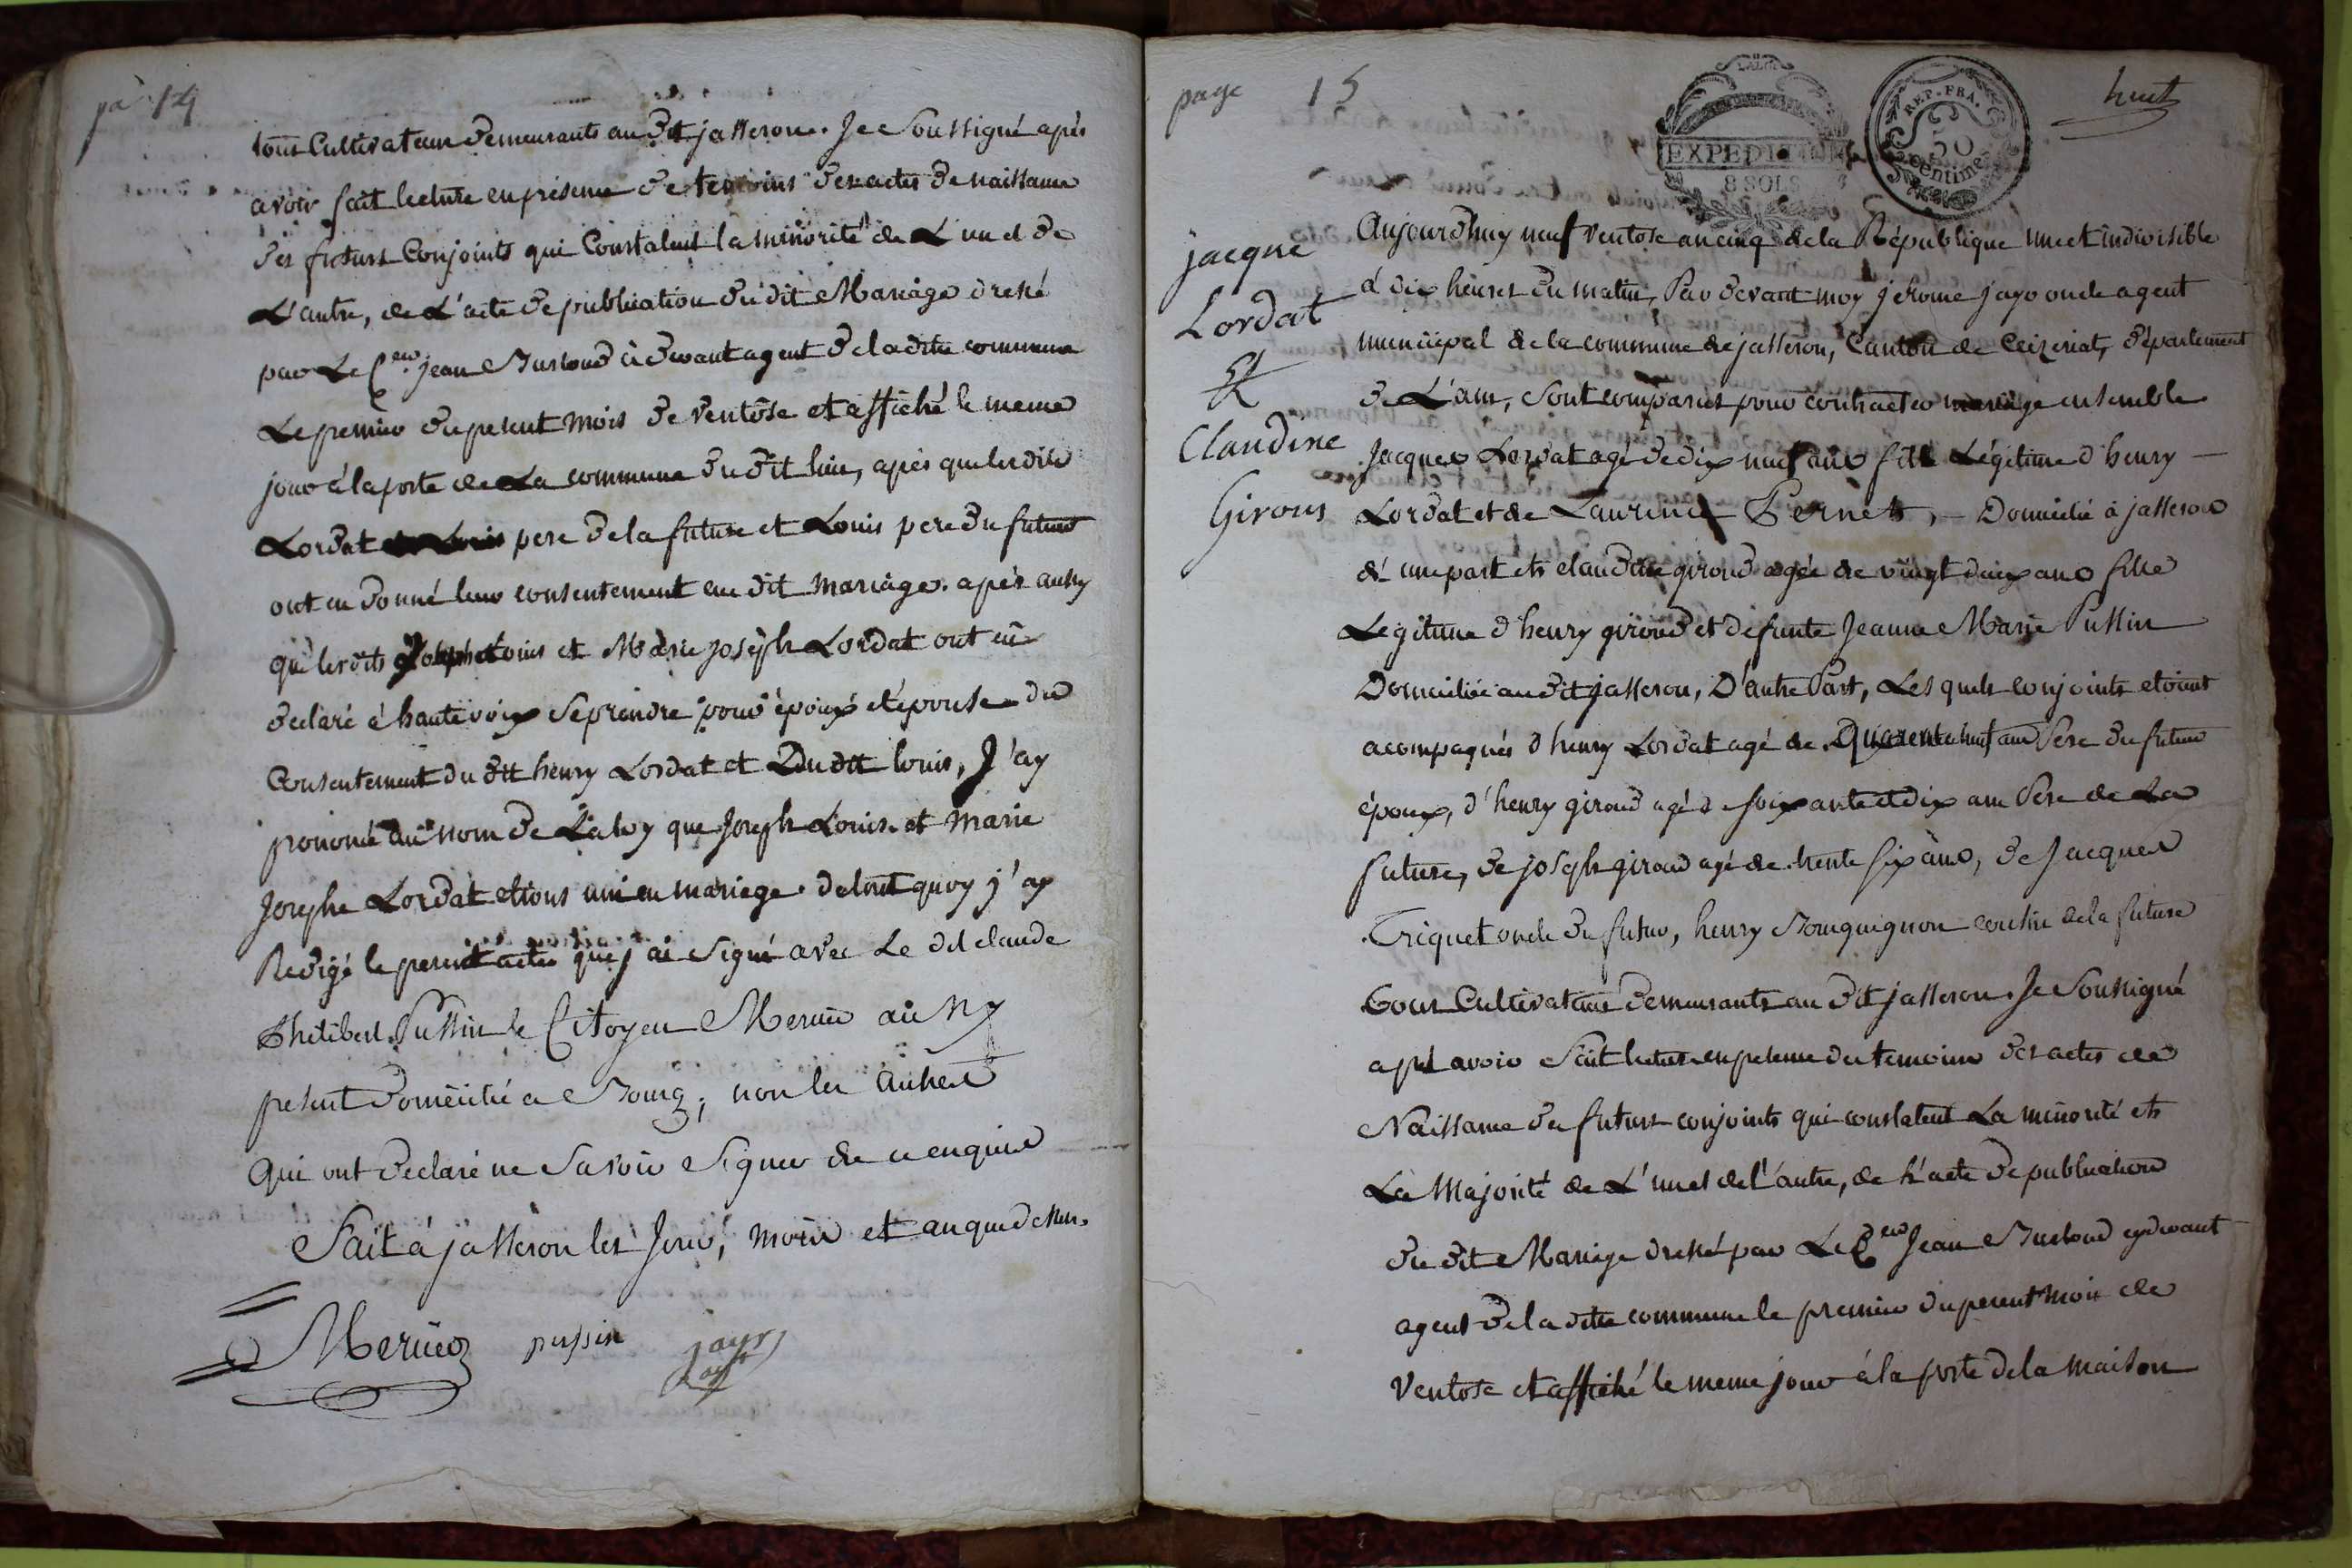 pa 14
tous Cultivateurs demeurants au dit jasseron. Je Soussigné après
avoir fait lecture en présence de temoins des actes de naissance
des futurs Conjoints qui Constatent la minorité de L'un et de
L'autre, de L'acte de publication du dit Mariage dressé
par Le Cen. jean Burtoud ci devant agent de la dite commune
Le premier du present mois de ventôse et affiché le meme
jour à la porte de La commune du dit lieu, après que lesdits
Lordat pere de la future et Louis pere du futur
ont eu donné leur consentement au dit mariage. après aussy
que lesdits joseph Louis et Marie joseph Lordat ont eû
declaré à haute voix se prendre pour époux et épouse du
Consentement du dit henry Lordat et Du dit louis, J'ay
prononcé au nom de La loy que Joseph Louis et Marie
Josephe Lordat etions uni en mariage. de tout quoy j'ay
Redigé le present acte que j'ai signé avec Le dit claude
Philibert Pussin le Citoyen Mercier
present domicilié a Bourg, non les autres
Qui ont declaré ne savoir signer de ce enquis
Fait à jasseron les Jour, mois et an que dessus.
Mercier pussin jayr
page 15
huit
EXPEDITION
8 SOLS
REP. FRA.
50
Centimes
jacque
Lordat
Et
Claudine
Girous
Aujourdhuy neuf ventose an cinq de la République une et indivisible
à dix heures du matin, Par devant moy jerome jayr oncle agent
municipal de la commune de jasseron, Canton de Ceizeriat, département
de L'ain, sont comparus pour contracter mariage ensemble
Jacques Lordat agé de dix neuf ans fils Légitime d'henry
Lordat et de Laurence Pernet, Domicilié à jasseron
d'une part et claudine giroud agée de vingt deux ans fille
Legitime d'henry giroud et defunte Jeanne Marie Pussin
Domiciliée au dit jasseron, D'autre Part, Les quels conjoints etoient
acompagnés d'henry Lordat agé de Quarente huit ans Pere du futur
époux, d'henry giroud agé de soixante et dix ans Pere de La
future, de joseph giroud agé de trente six ans, de Jacques
Triquet oncle du futur, henry Bourguignon cousin de la future
Tous Cultivateurs demeurants au dit jasseron. Je Soussigné
après avoir Fait lecture en presence des temoins des actes de
Naissance des futurs conjoints qui constatent La minorité et
La Majorité de L'un et de l'autre, de L'acte de publication
du dit Mariage dressé par Le Cen Jean Burtoud cy devant
agent de la dite commune le premier du present mois de
Ventose et affiché le meme jour à la porte de la maison